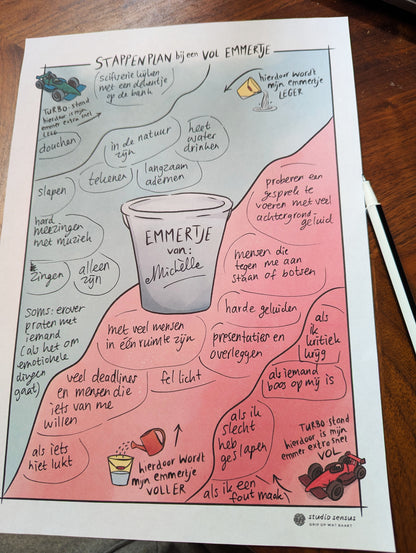 STAPPENPLAN bij een VOL EMMERTJE
scifiserie kijken
met een dekentje
op de bank
TURBO stand
hierdoor is mijn
emmer extra snel
LEEG
hierdoor wordt
mijn emmertje
LEGER
douchen
in de natuur
zijn
heet
water
drinken
slapen
tekenen
langzaam
ademen
proberen een
gesprek te
voeren met veel
achtergrond-
geluid
hard
meezingen
met muziek
EMMERTJE
van:
Michèlle
mensen die
tegen me aan
staan of botsen
zingen
alleen
zijn
harde geluiden
soms: erover
praten met
iemand
(als het om
emotionele
dingen
gaat)
met veel mensen
in één ruimte zijn
presentaties en
overleggen
als
ik
kritiek
krijg
veel deadlines
en mensen die
iets van me
willen
fel licht
als iemand
boos op mij is
als ik
slecht
heb
geslapen
als iets
niet lukt
hierdoor wordt
mijn emmertje
VOLLER
TURBO stand
hierdoor is mijn
emmer extra snel
VOL
als ik een
fout maak
studio sensus
GRIP OP WAT RAAKT